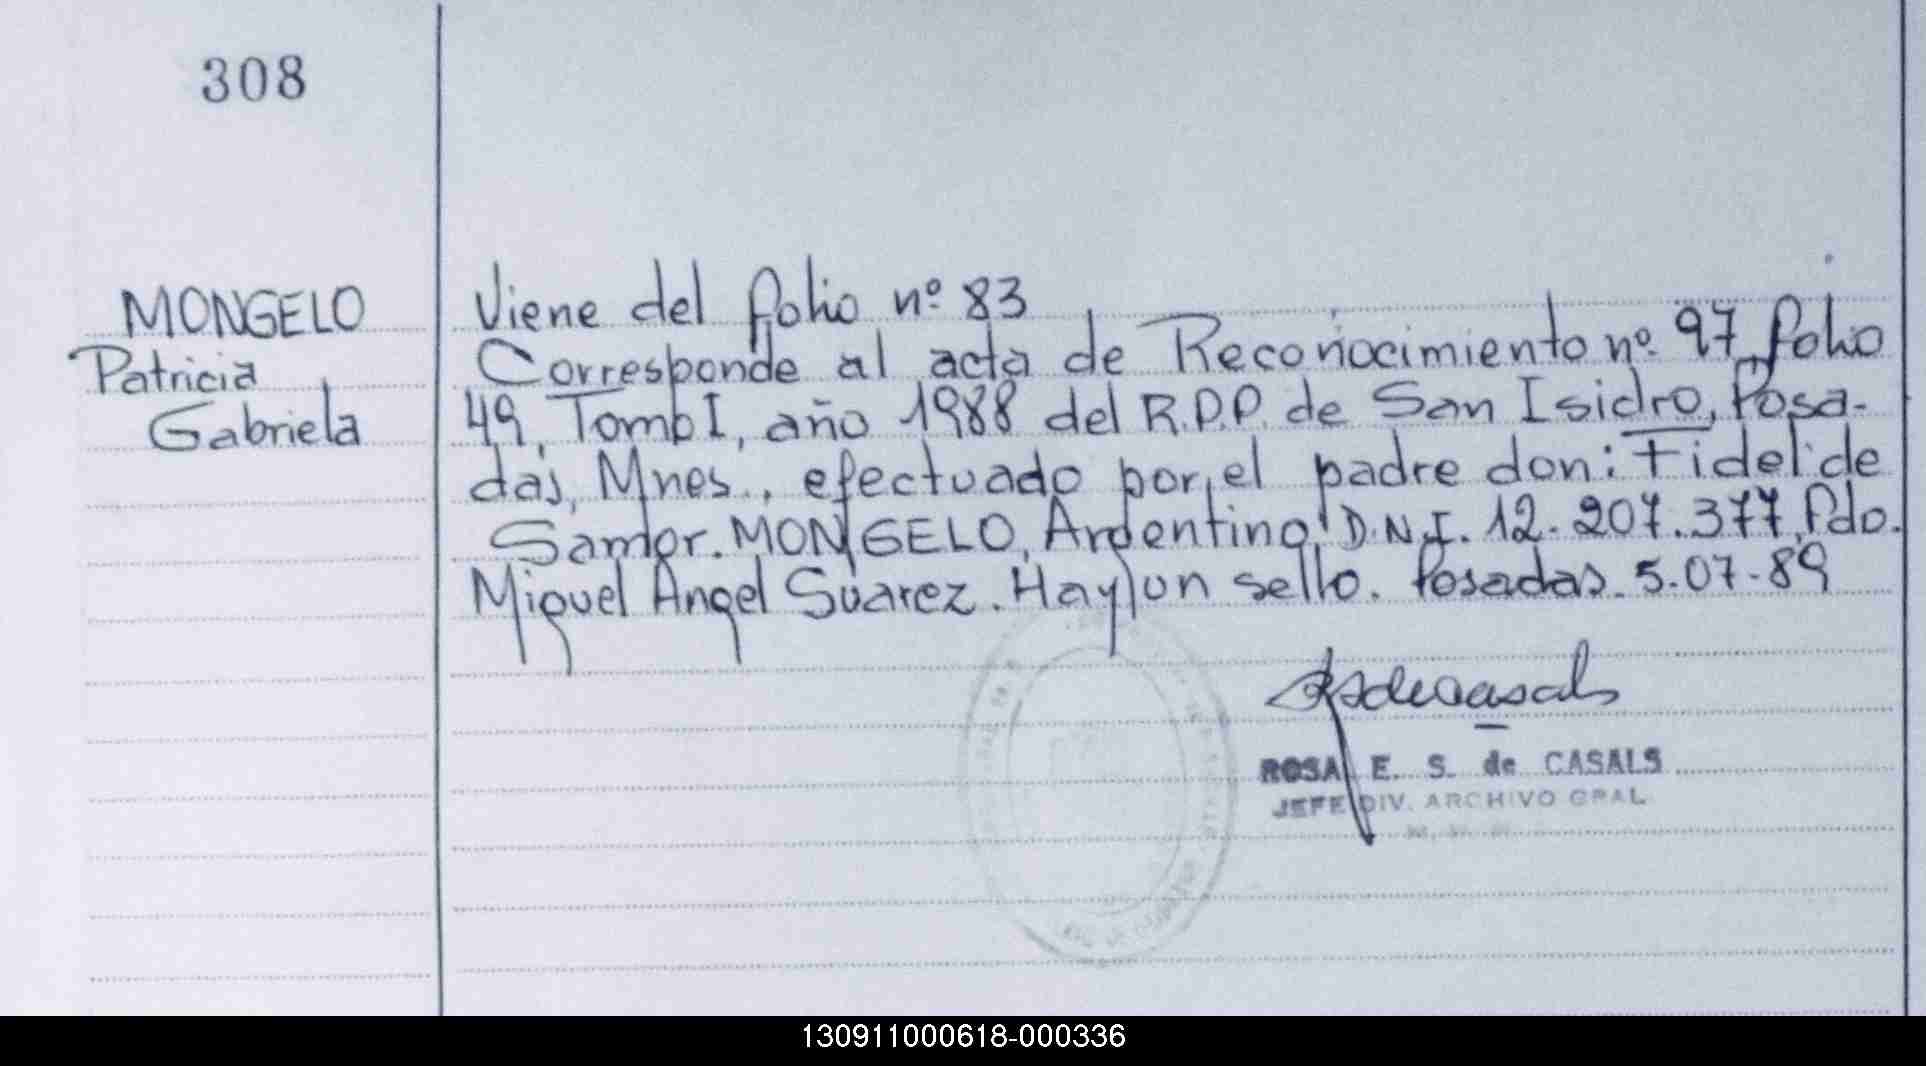 308
MONGELO
Patricia
Gabriela
Viene del folio nº 83
Corresponde al acta de Reconocimiento nº 97, folio
49, Tomo I, año 1988 del R.P.P. de San Isidro, Posa-
das, Mnes., efectuado por el padre don: Fidel de
Samor. MONGELO, Argentino D.N.I. 12.207.377, Fdo.
Miguel Angel Suarez. Hay un sello. Posadas. 5-07-89
ROSA E. S. de CASALS
JEFE DIV. ARCHIVO GRAL
130911000618-000336